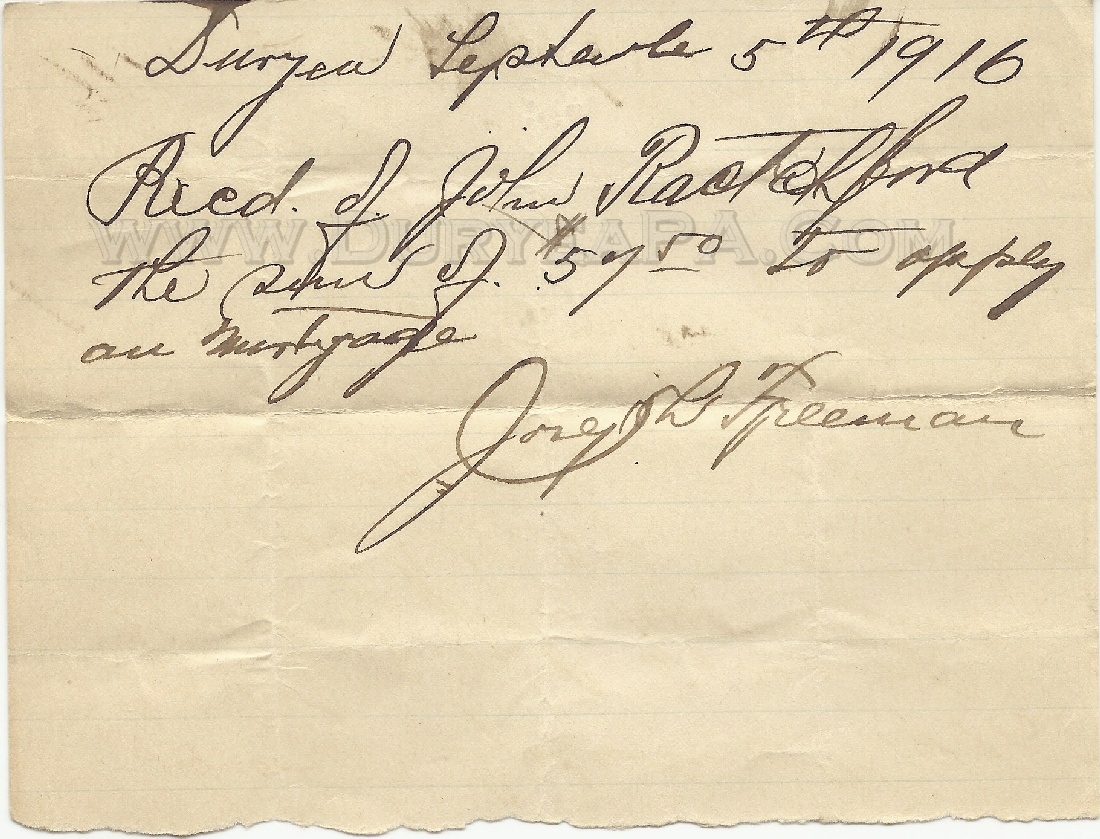 Duryea September 5th 1916
Recd. of John Rachelford
the sum of $57 50 to apply
on mortgage
Joseph Freeman
WWW.DURYEAPA.COM